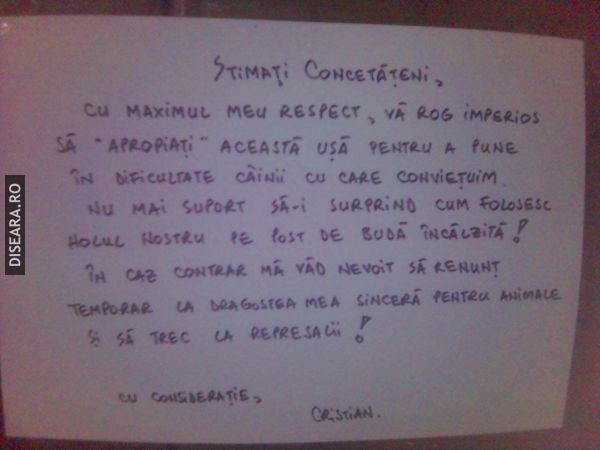 STIMAȚI CONCETĂȚENI,
CU MAXIMUL MEU RESPECT, VĂ ROG IMPERIOS
SĂ "APROPIAȚI" ACEASTĂ UȘĂ PENTRU A PUNE
ÎN DIFICULTATE CÂINII CU CARE CONVIEȚUIM.
NU MAI SUPORT SĂ-I SURPRIND CUM FOLOSESC
HOLUL NOSTRU PE POST DE BUDĂ ÎNCĂLZITĂ!
ÎN CAZ CONTRAR MĂ VĂD NEVOIT SĂ RENUNȚ
TEMPORAR LA DRAGOSTEA MEA SINCERĂ PENTRU ANIMALE
ȘI SĂ TREC LA REPRESALII!
CU CONSIDERAȚIE,
CRISTIAN.
DISEARA.RO